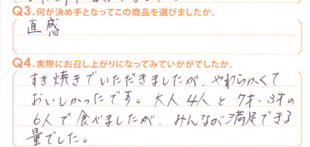 Q3.何が決め手となってこの商品を選びましたか。
直感
Q4.実際にお召し上がりになってみていかがでしたか。
すき焼きでいただきましたが、やわらかくて
おいしかったです。大人4人と7才・3才の
6人で食べましたが、みんなが満足できる
量でした。